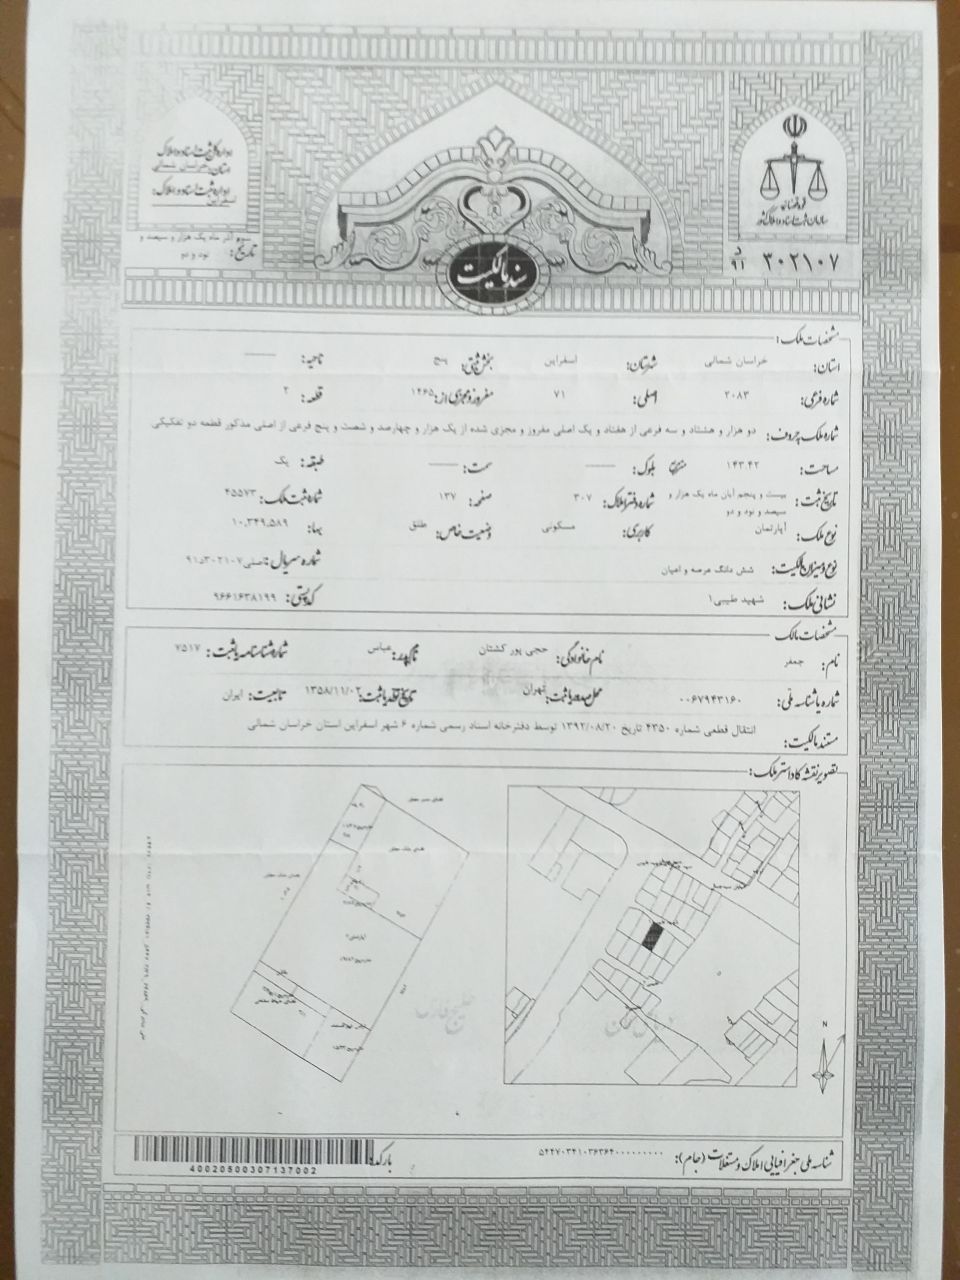 قوه قضائیه
سازمان ثبت اسناد و املاک کشور
۳۰۲۱۰۷ د ۹۱
اداره کل ثبت اسناد و املاک
استان: خراسان شمالی
اداره ثبت اسناد و املاک:
اسفراین
تاریخ: آذر ماه یک هزار و سیصد و
نود و دو
سند مالکیت
مشخصات ملک:
استان: خراسان شمالی شهرستان: اسفراین بخش ثبتی: پنج ناحیه: ——
شماره فرعی: ۲۰۸۳ اصلی: ۷۱ مفروز و مجزی از: ۱۴۶۵ قطعه: ۲
شماره ملک بحروف: دو هزار و هشتاد و سه فرعی از هفتاد و یک اصلی مفروز و مجزی شده از یک هزار و چهارصد و شصت و پنج فرعی از اصلی مذکور قطعه دو تفکیکی
مساحت: ۱۴۳.۴۲ متر مربع بلوک: —— سمت: —— طبقه: یک
تاریخ ثبت: بیست و پنجم آبان ماه یک هزار و سیصد و نود و دو شماره دفتر املاک: ۳۰۷ صفحه: ۱۳۷ شماره ثبت ملک: ۴۵۵۷۳
نوع ملک: آپارتمان کاربری: مسکونی وضعیت خاص: طلق بها: ۱۰,۳۴۹,۵۸۹
نوع و میزان مالکیت: شش دانگ عرصه و اعیان شماره سریال: اصلی ۳۰۲۱۰۷د۹۱
نشانی ملک: شهید طیبی۱ کد پستی: ۹۶۶۱۶۳۸۱۹۹
مشخصات مالک:
نام: جعفر نام خانوادگی: حجی پور کشتان نام پدر: عباس شماره شناسنامه یا ثبت: ۷۵۱۷
شماره یا شناسه ملی: ۰۰۶۷۹۴۳۱۶۰ محل صدور یا ثبت: تهران تاریخ تولد یا ثبت: ۱۳۵۸/۱۱/۰۲ تابعیت: ایران
مستند مالکیت: انتقال قطعی شماره ۴۳۵۰ تاریخ ۱۳۹۲/۰۸/۲۰ توسط دفترخانه اسناد رسمی شماره ۶ شهر اسفراین استان خراسان شمالی
تصویر نقشه کاداستر ملک:
N
شناسه ملی جغرافیایی املاک و مستغلات (جام): ۵۴۴۷۰۳۴۱۰۳۶۳۶۴۰۰۰۰۰۰۰۰۰
بارکد:
40020500307137002